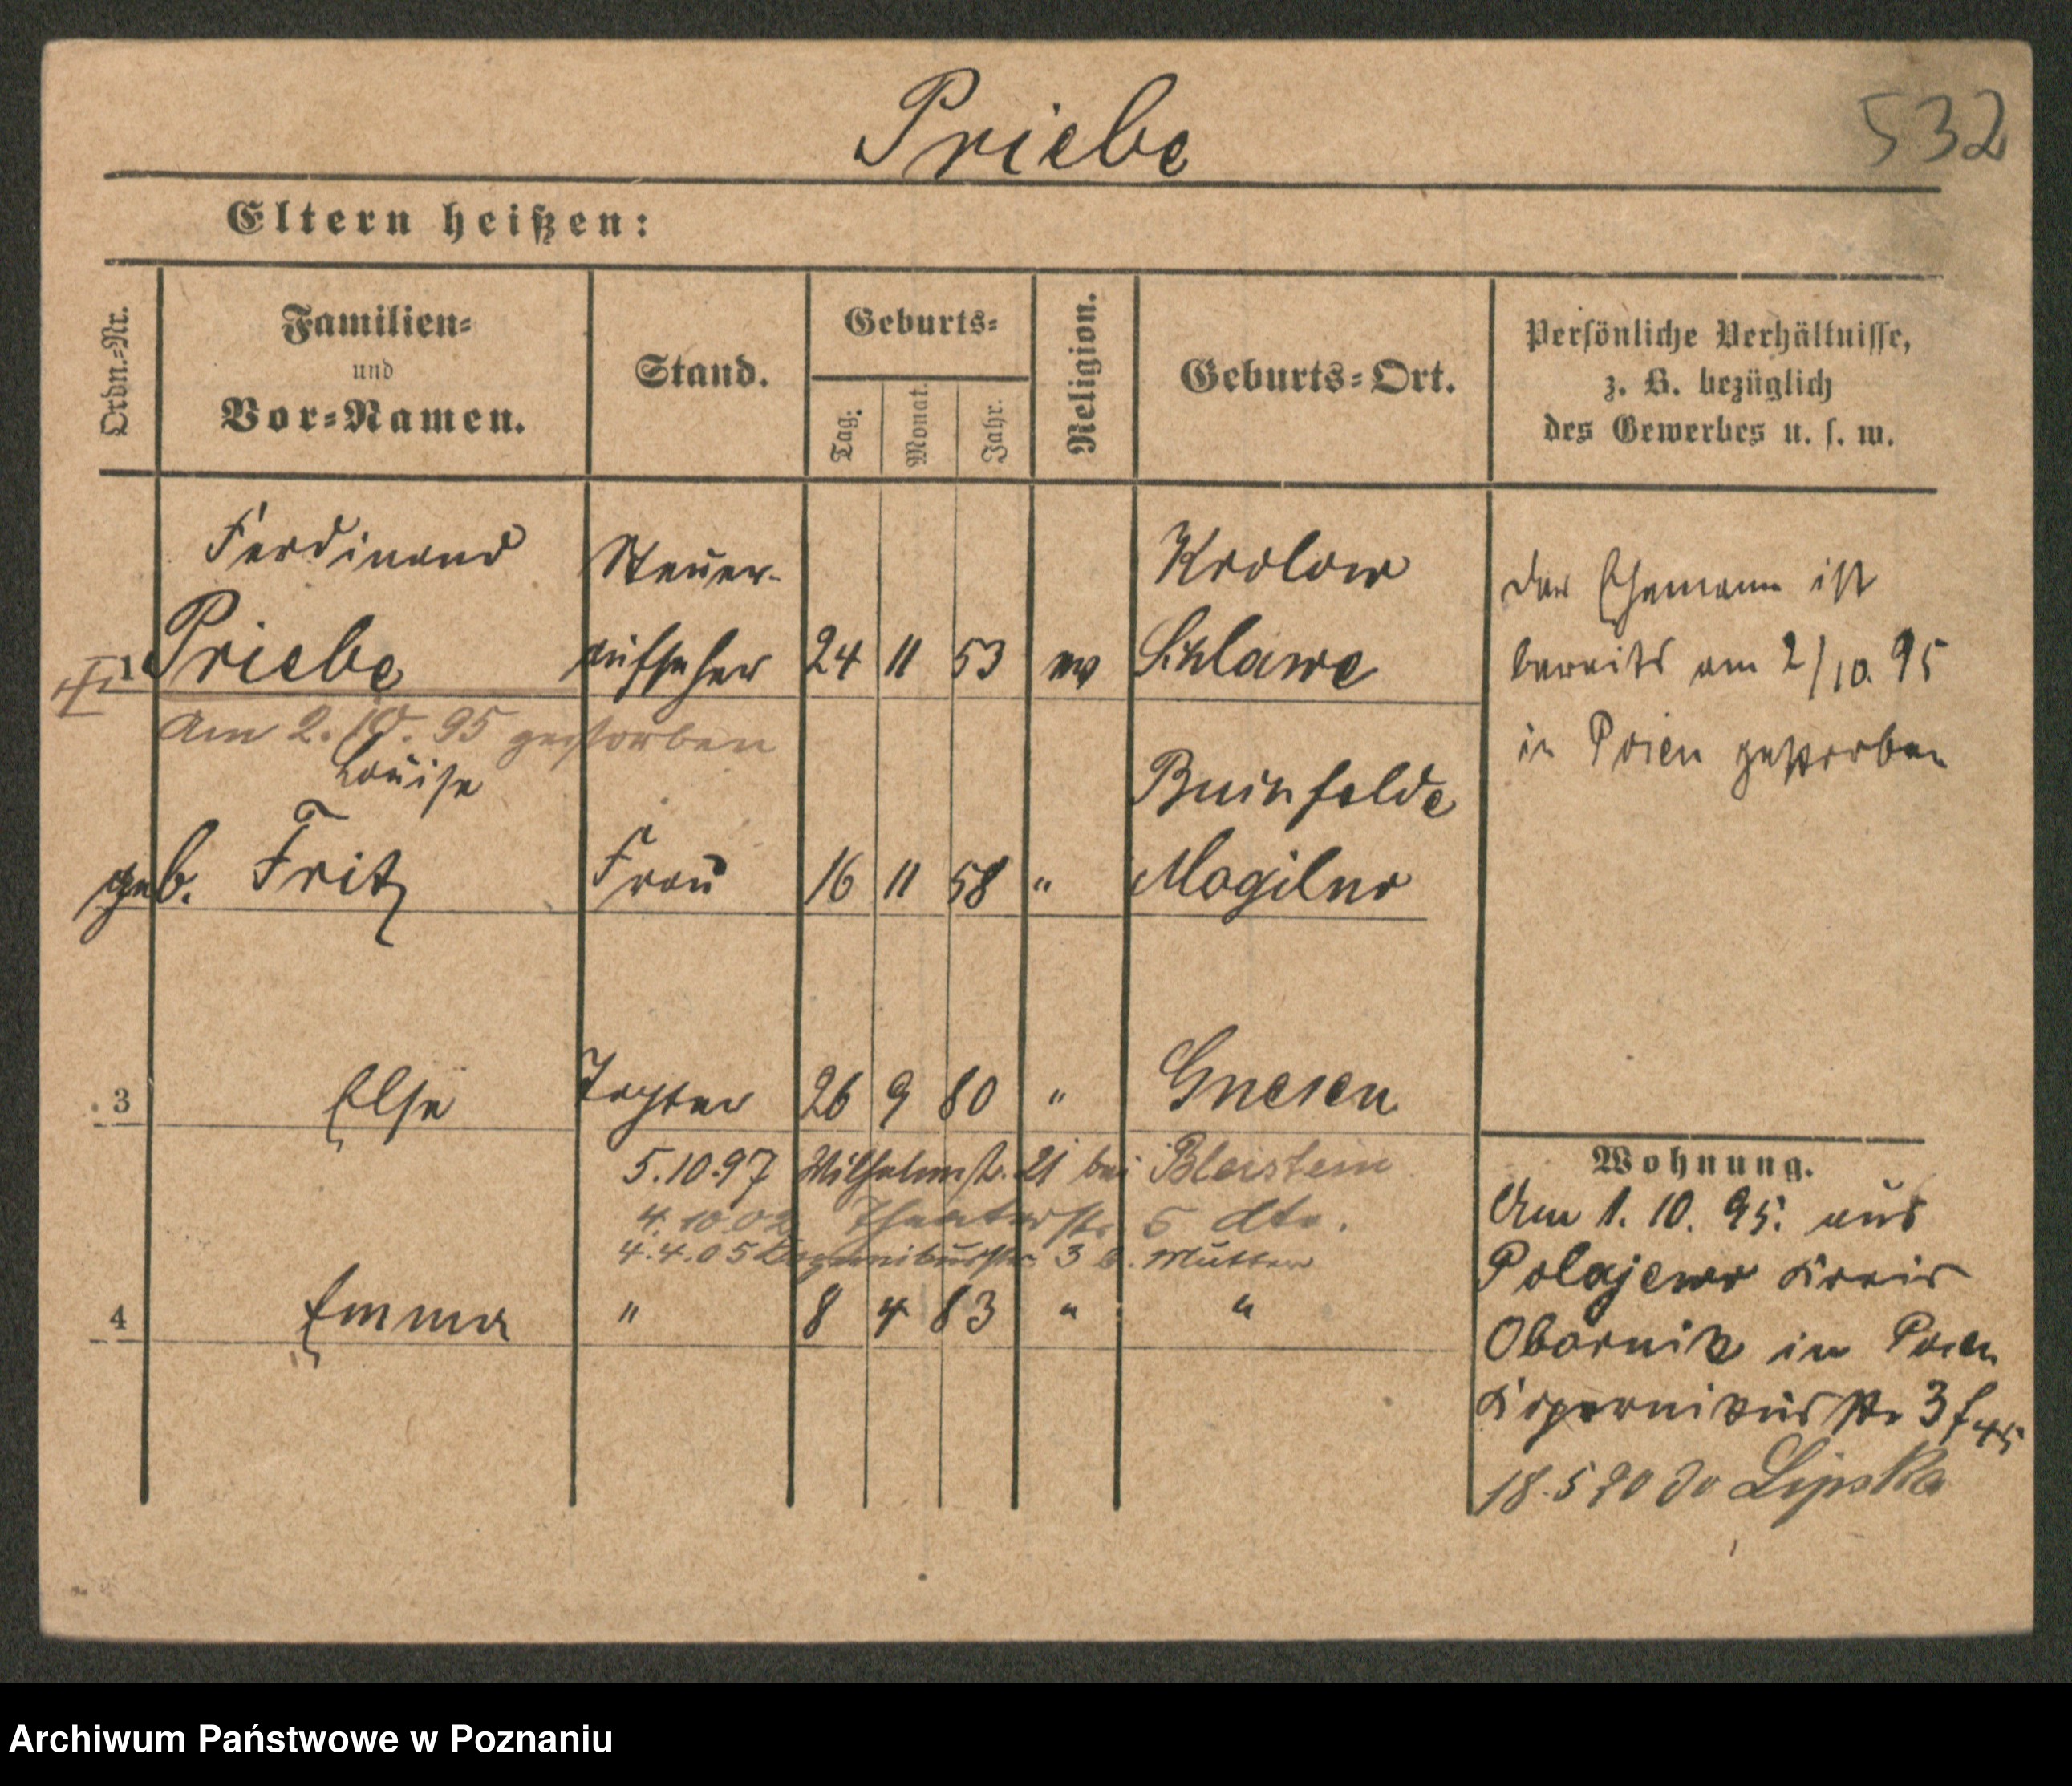 Priebe
532
Eltern heißen:
Ordn.-Nr.
Familien-
und
Vor-Namen.
Stand.
Geburts-
Tag.
Monat.
Jahr.
Religion.
Geburts-Ort.
Persönliche Verhältnisse,
z. B. bezüglich
des Gewerbes u. s. w.
Ferdinand Steuer- Krolow
1 Priebe aufseher 24 11 53 ev Schlawe
Am 2. 10. 95 gestorben
Der Ehemann ist
bereits am 2/10. 95
in Posen gestorben
Louise
geb. Fritz Frau 16 11 58 " Mogilno
3 Else Tochter 26 9 80 " Gnesen
5.10.97 Wilhelmstr. 21 bei Bleistein
4.10.02 Theaterstr. 5 dto.
4.4.05 Kopernikusstr. 3 b. Mutter
4 Emma " 8 4 83 " "
Wohnung.
Am 1. 10. 95. aus
Polajewo Kreis
Obornik in Posen
Kopernikusstr 3
18.5 20 do Lipska
Archiwum Państwowe w Poznaniu